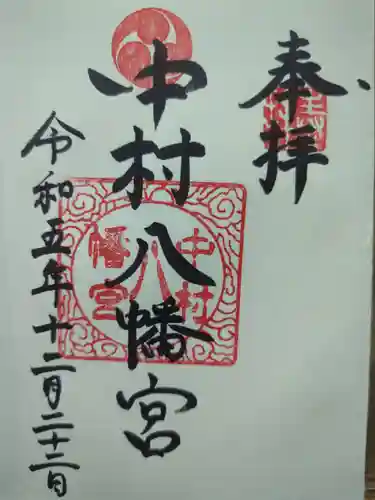 奉拝
中村八幡宮
令和五年十二月二十二日
中村
八
幡宮